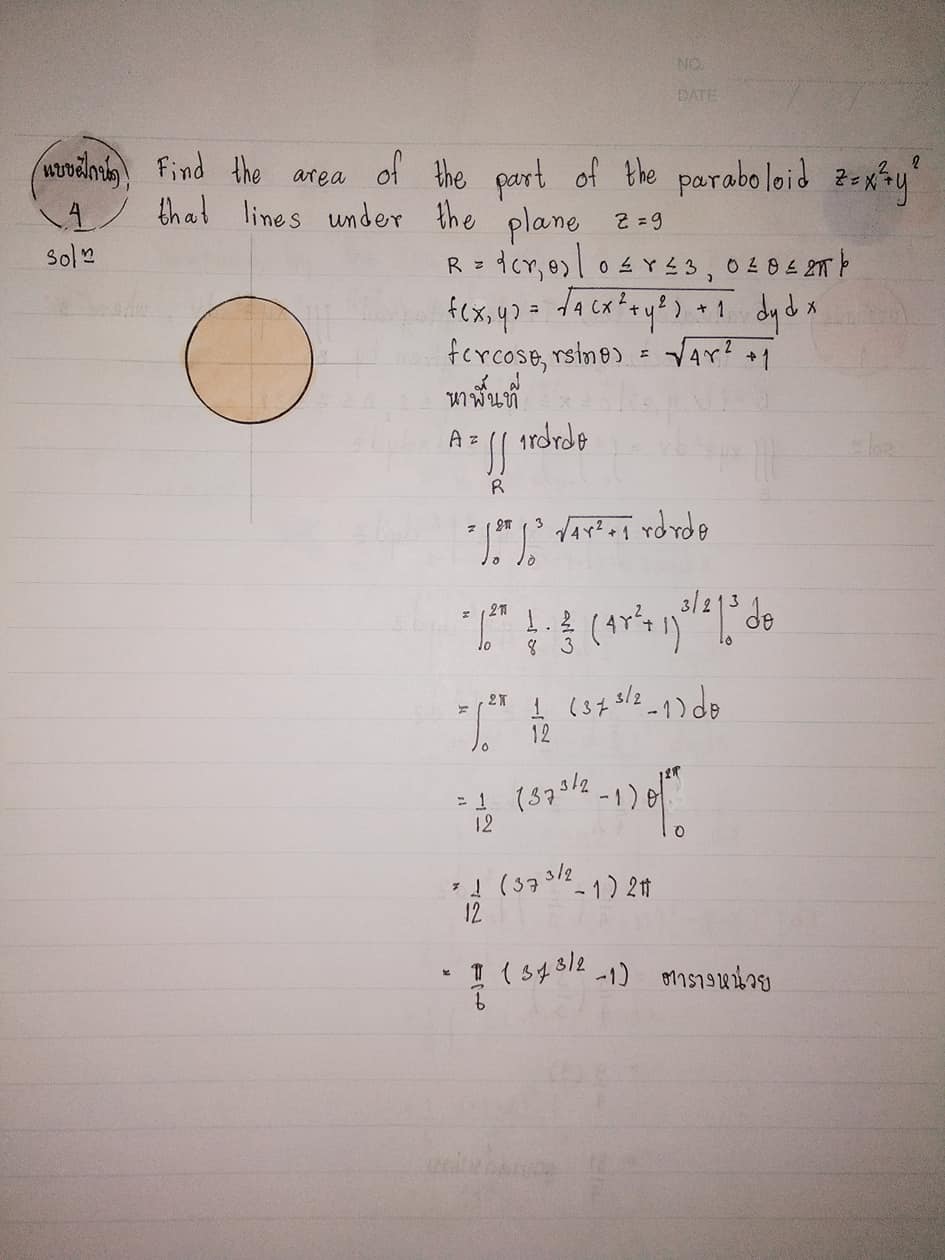 NO.
DATE
แบบฝึกหัด
4
Find the area of the part of the paraboloid z=x²+y²
that lines under the plane z=9
solⁿ
R = {(r,θ)| 0 ≤ r ≤ 3, 0 ≤ θ ≤ 2π}
f(x,y) = √(4(x²+y²)+1) dydx
f(rcosθ, rsinθ) = √(4r²+1)
หาพื้นที่
A = ∬_R 1rdrdθ
= ∫₀^2π ∫₀³ √(4r²+1) rdrdθ
= ∫₀^2π 1/8 · 2/3 (4r²+1)^3/2 |₀³ dθ
= ∫₀^2π 1/12 (37^3/2 - 1) dθ
= 1/12 (37^3/2 - 1) θ|₀^2π
= 1/12 (37^3/2 - 1) 2π
= π/6 (37^3/2 - 1) ตารางหน่วย